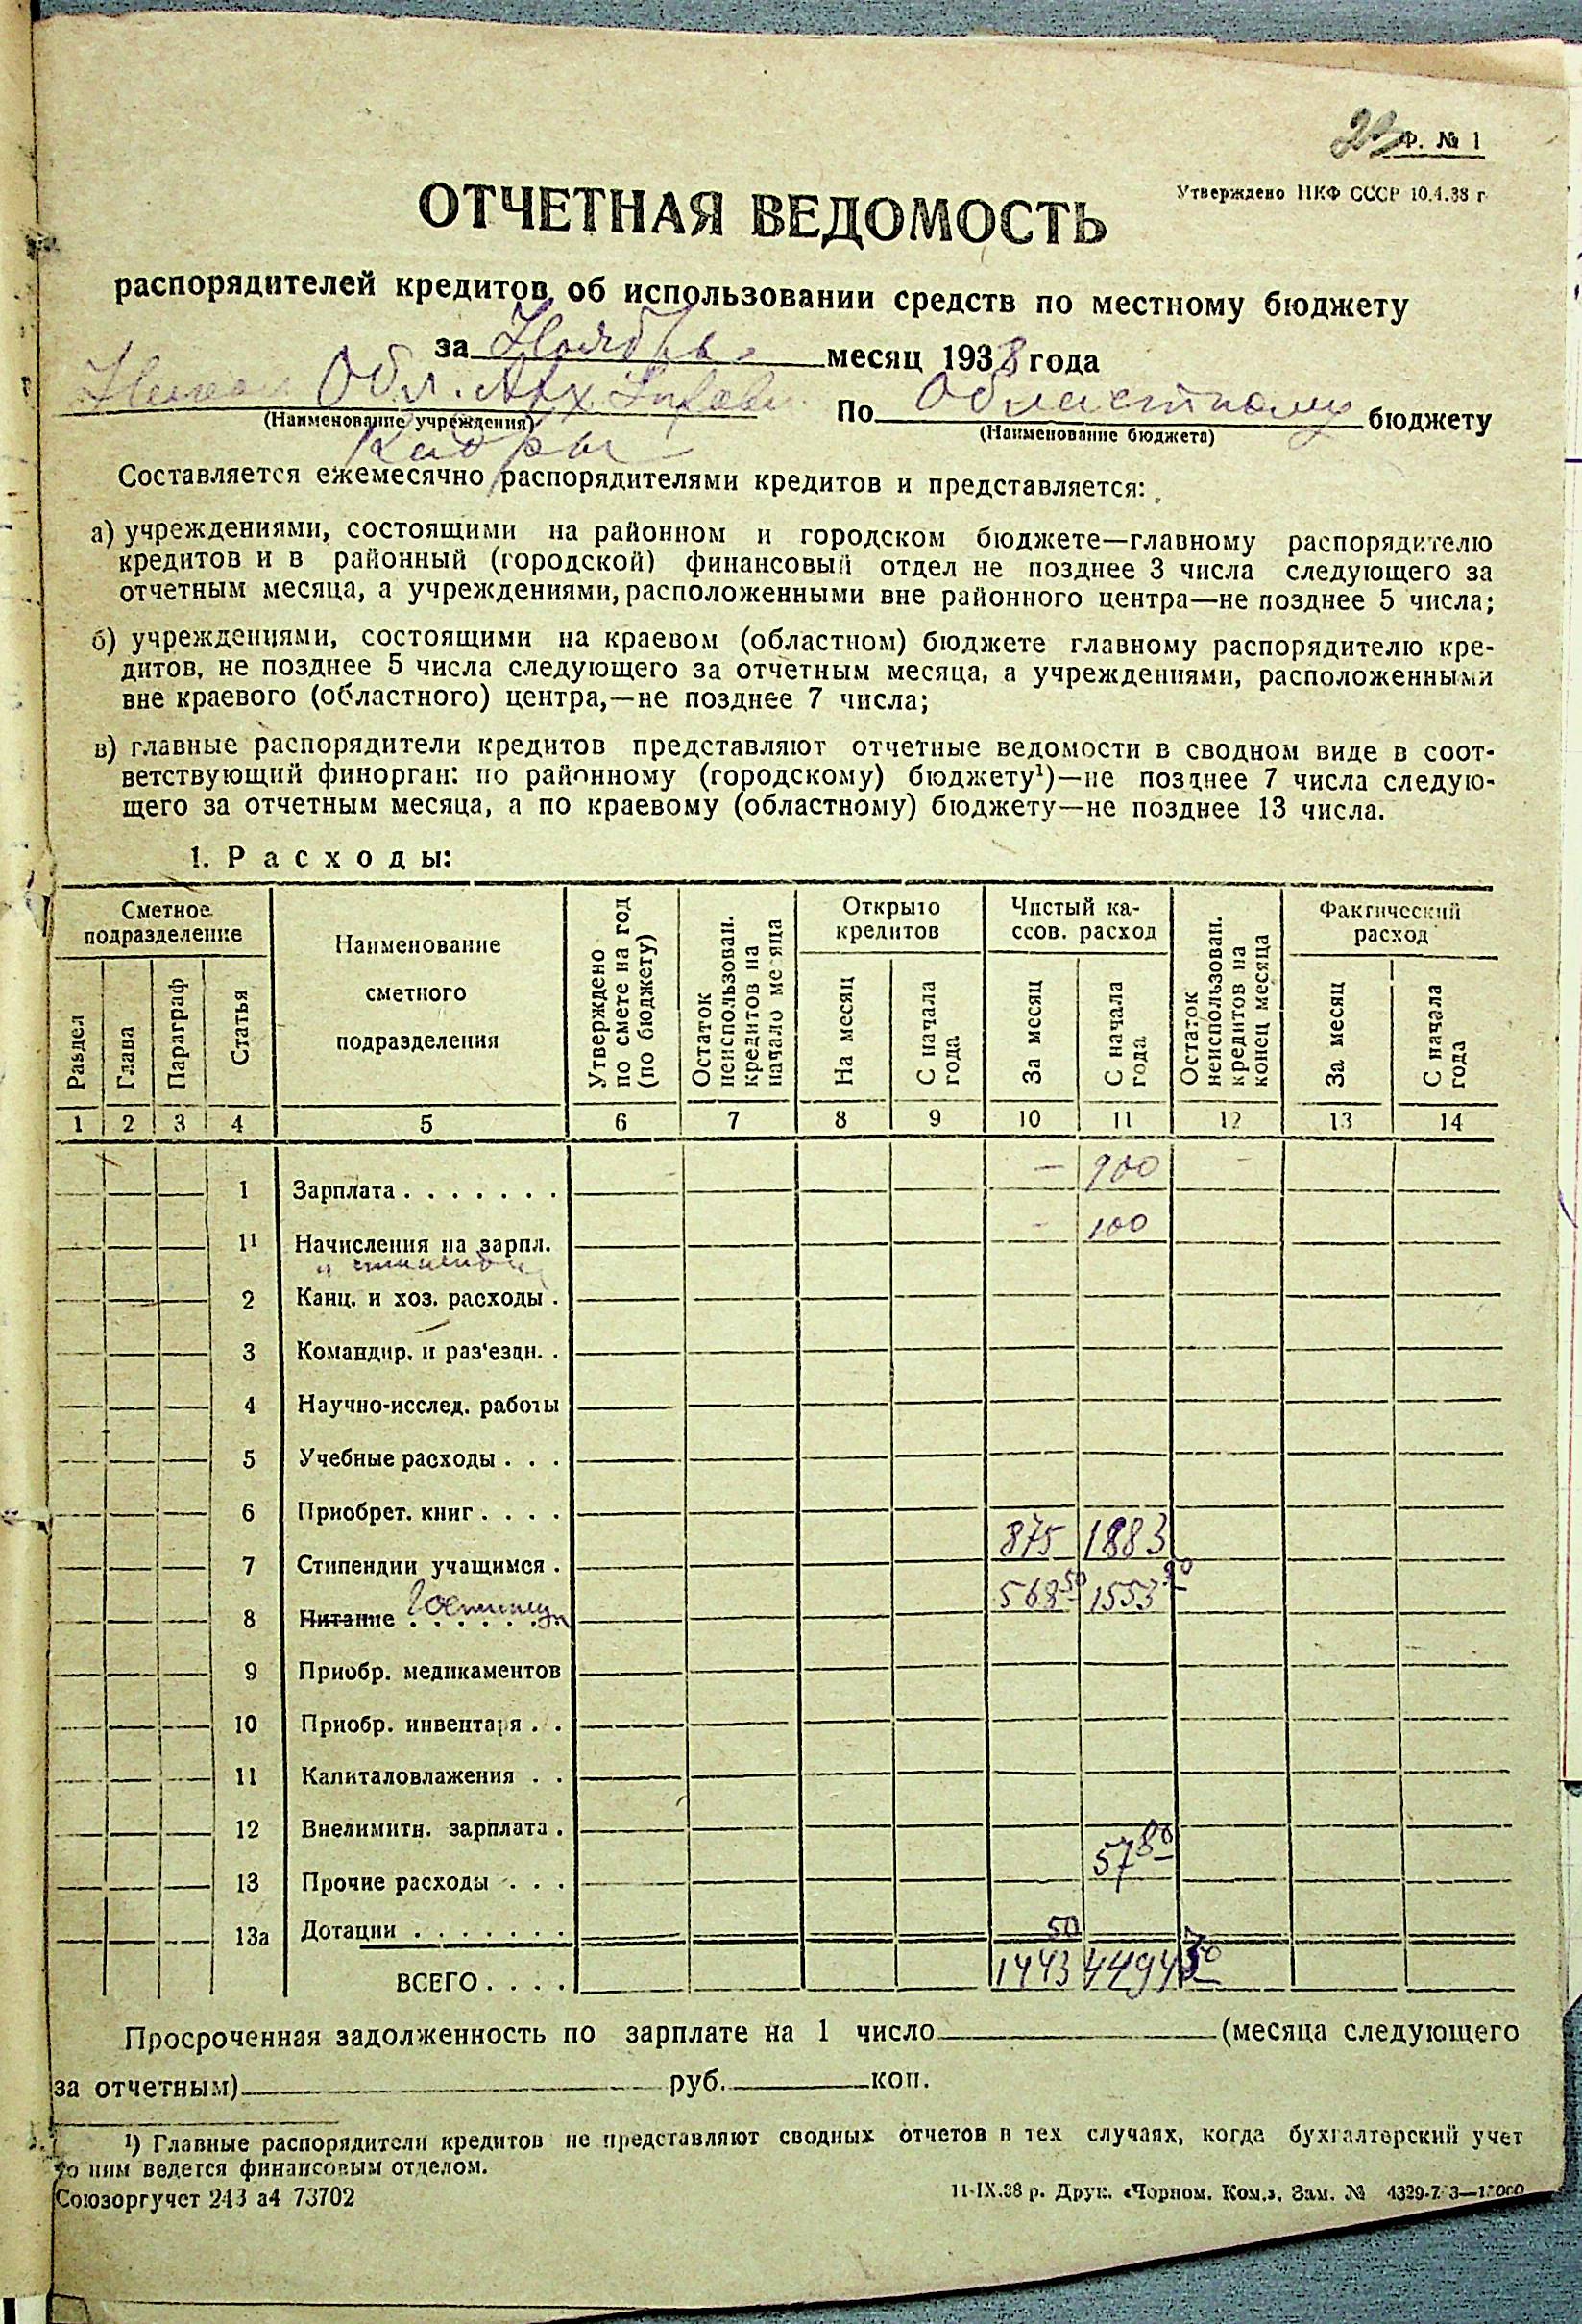 23 Ф. № 1
Утверждено НКФ СССР 10.4.38 г.
ОТЧЕТНАЯ ВЕДОМОСТЬ
распорядителей кредитов об использовании средств по местному бюджету
за Ноябрь месяц 1938 года
Обл. Арх. По Областному бюджету
(Наименование учреждения) (Наименование бюджета)
Кадры
Составляется ежемесячно распорядителями кредитов и представляется:
а) учреждениями, состоящими на районном и городском бюджете—главному распорядителю
кредитов и в районный (городской) финансовый отдел не позднее 3 числа следующего за
отчетным месяца, а учреждениями, расположенными вне районного центра—не позднее 5 числа;
б) учреждениями, состоящими на краевом (областном) бюджете главному распорядителю кре-
дитов, не позднее 5 числа следующего за отчетным месяца, а учреждениями, расположенными
вне краевого (областного) центра,—не позднее 7 числа;
в) главные распорядители кредитов представляют отчетные ведомости в сводном виде в соот-
ветствующий финорган: по районному (городскому) бюджету¹)—не позднее 7 числа следую-
щего за отчетным месяца, а по краевому (областному) бюджету—не позднее 13 числа.
1. Расходы:
Сметное подразделение
Раздел
Глава
Параграф
Статья
Наименование
сметного
подразделения
Утверждено по смете на год (по бюджету)
Остаток неиспользован. кредитов на начало месяца
Открыто кредитов
На месяц
С начала года
Чистый ка-
ссов. расход
За месяц
С начала года
Остаток неиспользован. кредитов на конец месяца
Фактический расход
За месяц
С начала года
1 2 3 4 5 6 7 8 9 10 11 12 13 14
1 Зарплата . . . . . . . — 900
1¹ Начисления на зарпл. — 100
2 Канц. и хоз. расходы .
3 Командир. и раз'ездн. .
4 Научно-исслед. работы
5 Учебные расходы . . .
6 Приобрет. книг . . . .
7 Стипендии учащимся . 875 1883
8 Питание 568 50 1553 90
9 Приобр. медикаментов
10 Приобр. инвентаря . .
11 Капиталовлажения . .
12 Внелимитн. зарплата .
13 Прочие расходы . . . 57 80
13а Дотации . . . . . . .
ВСЕГО . . . . 1443 50 4494 70
Просроченная задолженность по зарплате на 1 число (месяца следующего
за отчетным) руб. коп.
¹) Главные распорядители кредитов не представляют сводных отчетов в тех случаях, когда бухгалтерский учет
по ним ведется финансовым отделом.
Союзоргучет 243 а4 73702
11-IX.38 р. Друк. «Чорном. Ком.», Зам. №